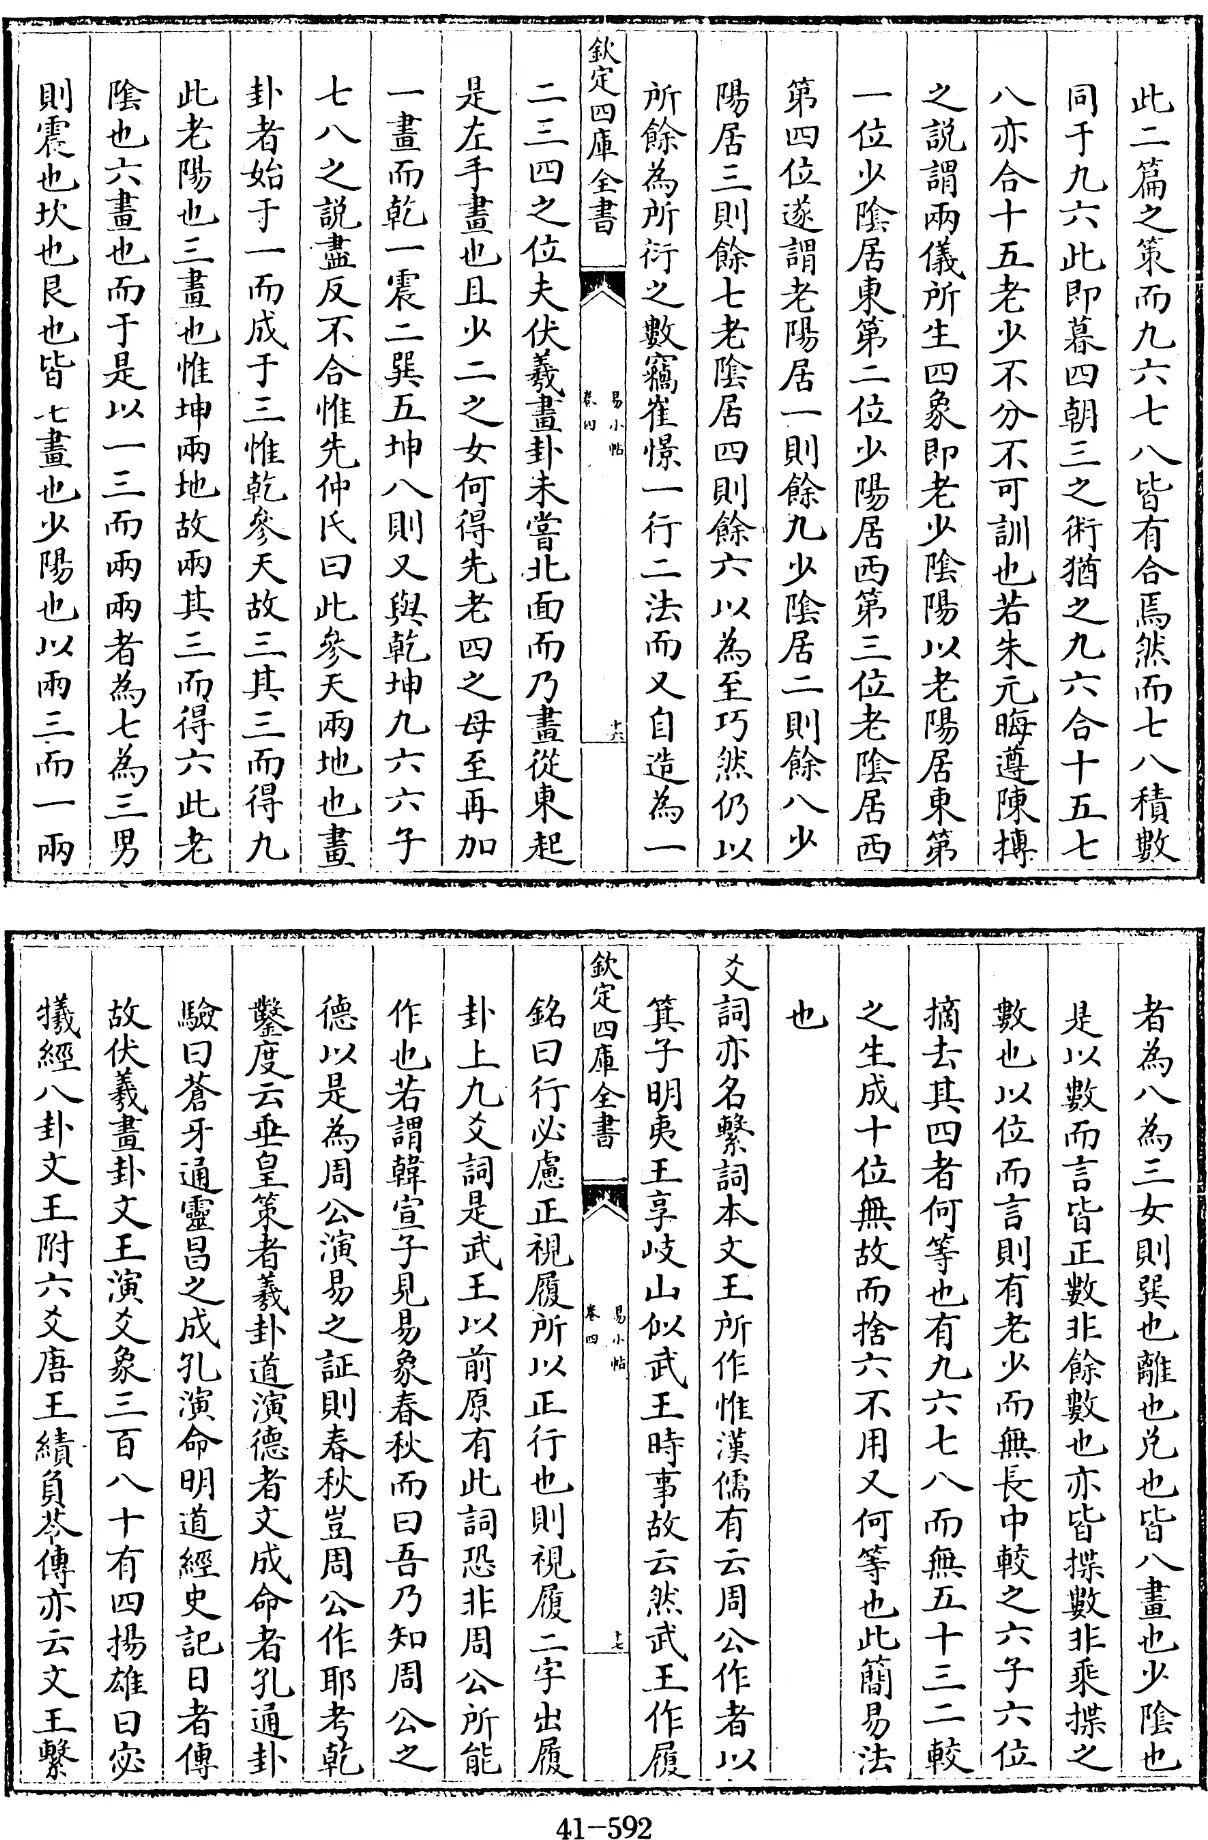 此二篇之策而九六七八皆有合焉然而七八積數
同于九六此即暮四朝三之術猶之九六合十五七
八亦合十五老少不分不可訓也若朱元晦遵陳摶
之説謂兩儀所生四象即老少陰陽以老陽居東第
一位少陰居東第二位少陽居西第三位老陰居西
第四位遂謂老陽居一則餘九少陰居二則餘八少
陽居三則餘七老陰居四則餘六以為至巧然仍以
所餘為所衍之數竊崔憬一行二法而又自造為一
欽定四庫全書
易小帖
卷四
十六
二三四之位夫伏羲畫卦未嘗北面而乃畫從東起
是左手畫也且少二之女何得先老四之母至再加
一畫而乾一震二巽五坤八則又與乾坤九六六子
七八之説盡反不合惟先仲氏曰此參天兩地也畫
卦者始于一而成于三惟乾參天故三其三而得九
此老陽也三畫也惟坤兩地故兩其三而得六此老
陰也六畫也而于是以一三而兩兩者為七為三男
則震也坎也艮也皆七畫也少陽也以兩三而一兩
者為八為三女則巽也離也兑也皆八畫也少陰也
是以數而言皆正數非餘數也亦皆揲數非乘揲之
數也以位而言則有老少而無長中較之六子六位
摘去其四者何等也有九六七八而無五十三二較
之生成十位無故而捨六不用又何等也此簡易法
也
爻詞亦名繫詞本文王所作惟漢儒有云周公作者以
箕子明夷王享岐山似武王時事故云然武王作履
欽定四庫全書
易小帖
卷四
十七
銘曰行必慮正視履所以正行也則視履二字出履
卦上九爻詞是武王以前原有此詞恐非周公所能
作也若謂韓宣子見易象春秋而曰吾乃知周公之
德以是為周公演易之証則春秋豈周公作耶考乾
鑿度云垂皇策者羲卦道演德者文成命者孔通卦
驗曰蒼牙通靈昌之成孔演命明道經史記日者傳
故伏羲畫卦文王演爻象三百八十有四揚雄曰宓
犧經八卦文王附六爻唐王績負苓傳亦云文王繫
41-592